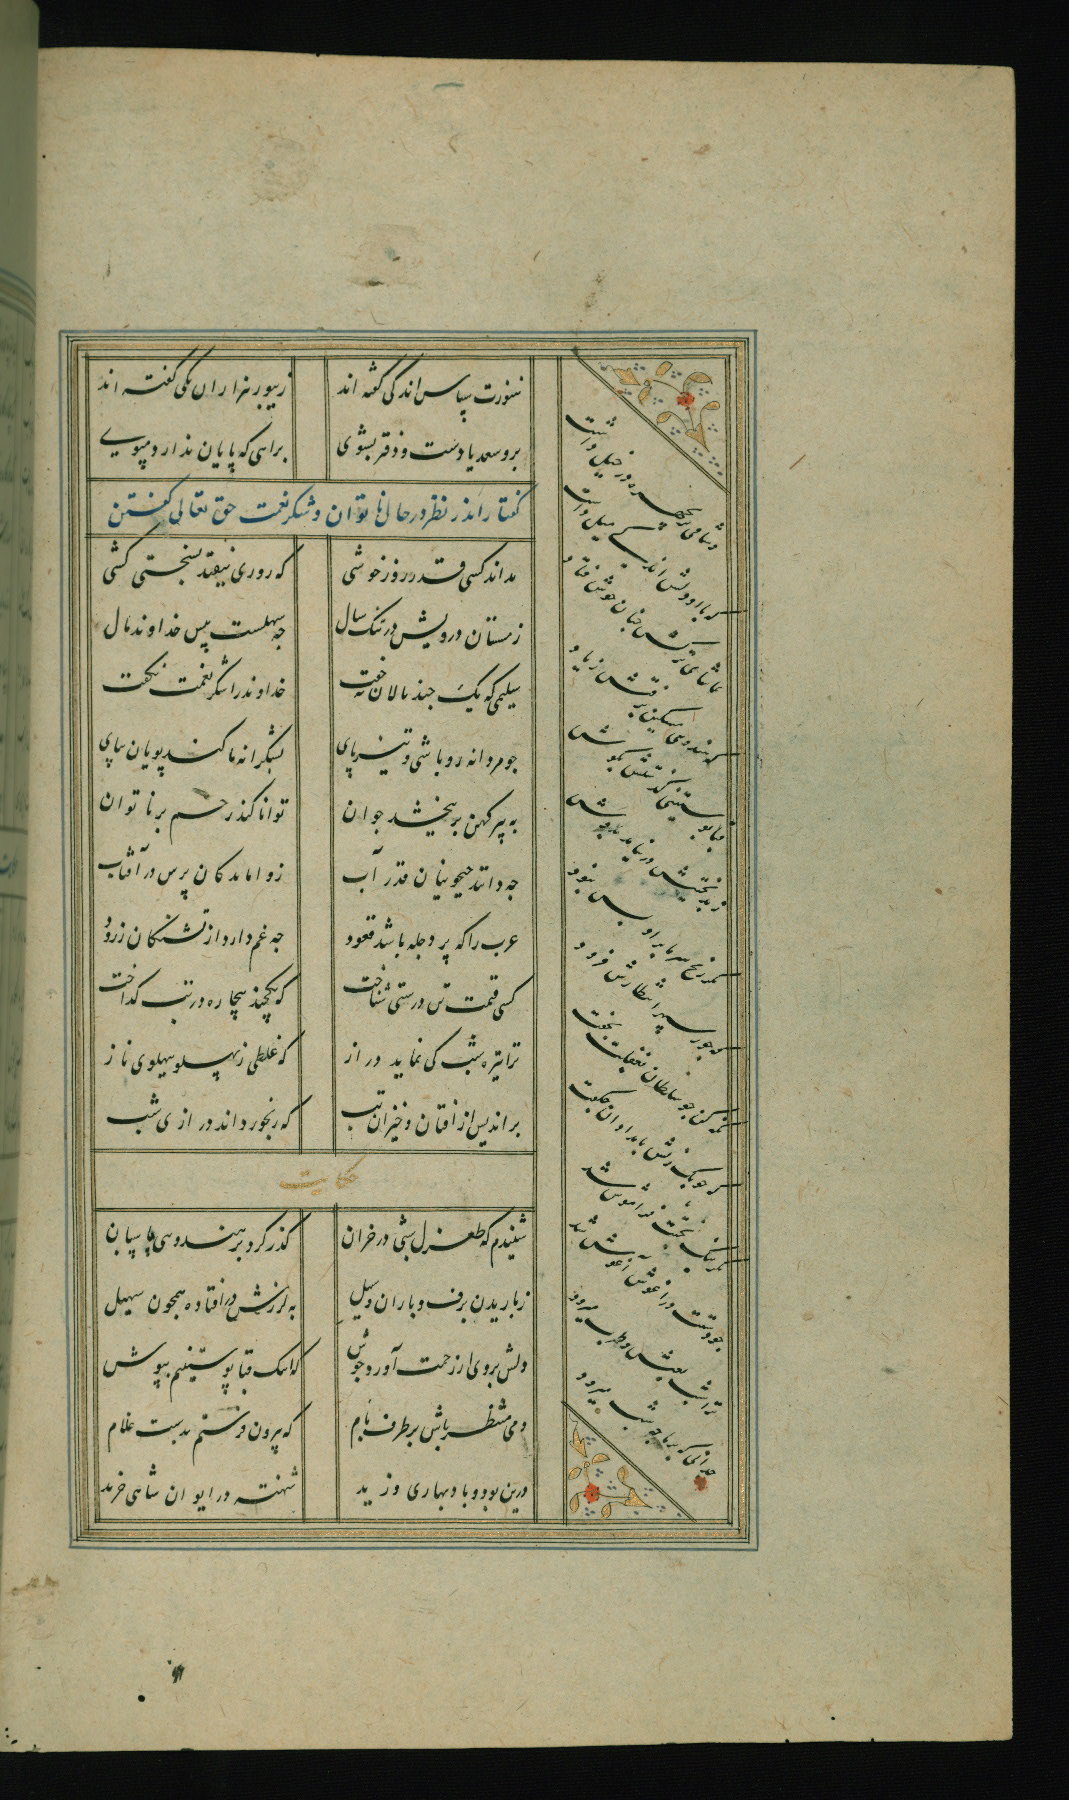 هنوزت سپاس اندکی گفته اند ز بیور هزاران یکی گفته اند
برو سعدیا دست و دفتر بشوی براهی که پایان ندارد مپوی
گفتار اندر نظر در حال ناتوان و شکر نعمت حق تعالی گفتن
نداند کسی قدر روز خوشی که روزی نیفتد بسختی کشی
زمستان درویش در تنک سال چه سهلست پیش خداوند مال
سلیمی که یک چند نالان نخفت خداوند را شکر نعمت نکفت
چو مردانه رو باشی و تیز پای بشکرانه ما کند پویان بپای
به پیر کهن بر ببخشد جوان توانا کند رحم بر ناتوان
چه دانند جیحونیان قدر آب ز واماندکان پرس در آفتاب
عرب را که بر دجله باشد قعود چه غم دارد از تشنکان زرود
کسی قیمت تن درستی شناخت که یکچند بیچاره در تب کداخت
ترا تیره شب کی نماید دراز که غلطی ز پهلو بپهلوی ناز
بر اندیش از افتان و خیزان تب که رنجور داند درازی شب
حکایت
شنیدم که طغرل شبی در خزان گذر کرد بر هندوی پاسبان
ز باریدن برف و باران و سیل به لرزش در افتاده همچون سهیل
دلش بر وی از رحمت آورد جوش که اینک قبا پوستینم بپوش
دمی منتظر باش بر طرف بام که بیرون فرستم بدست غلام
درین بود و باد بهاری وزید شهنشه در ایوان شاهی خزید
وشاقی پریچهره در خیل داشت
که با او دلش اندکی میل داشت
تماشای ترکش چنان خوش فتاد
که هندوی مسکین برفتش ز یاد
قبا پوستینی گذشتش بگوش
ز بدبختیش در نیامد بدوش
مگر رنج سرما برو بس نبود
که جور سپهر انتظارش فزود
نگه کن چو سلطان بغفلت بخفت
که چوبک زنش بامدادان چگفت
مگر نیک بختت فراموش شد
چو دستت در آغوش آغوش شد
ترا شب بعیش و طرب میرود
چه دانی که بر ما چه شب میرود